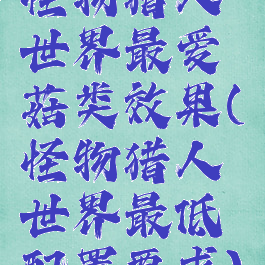 怪物猎人
世界最爱
菇类效果(
怪物猎人
世界最低
配置要求)